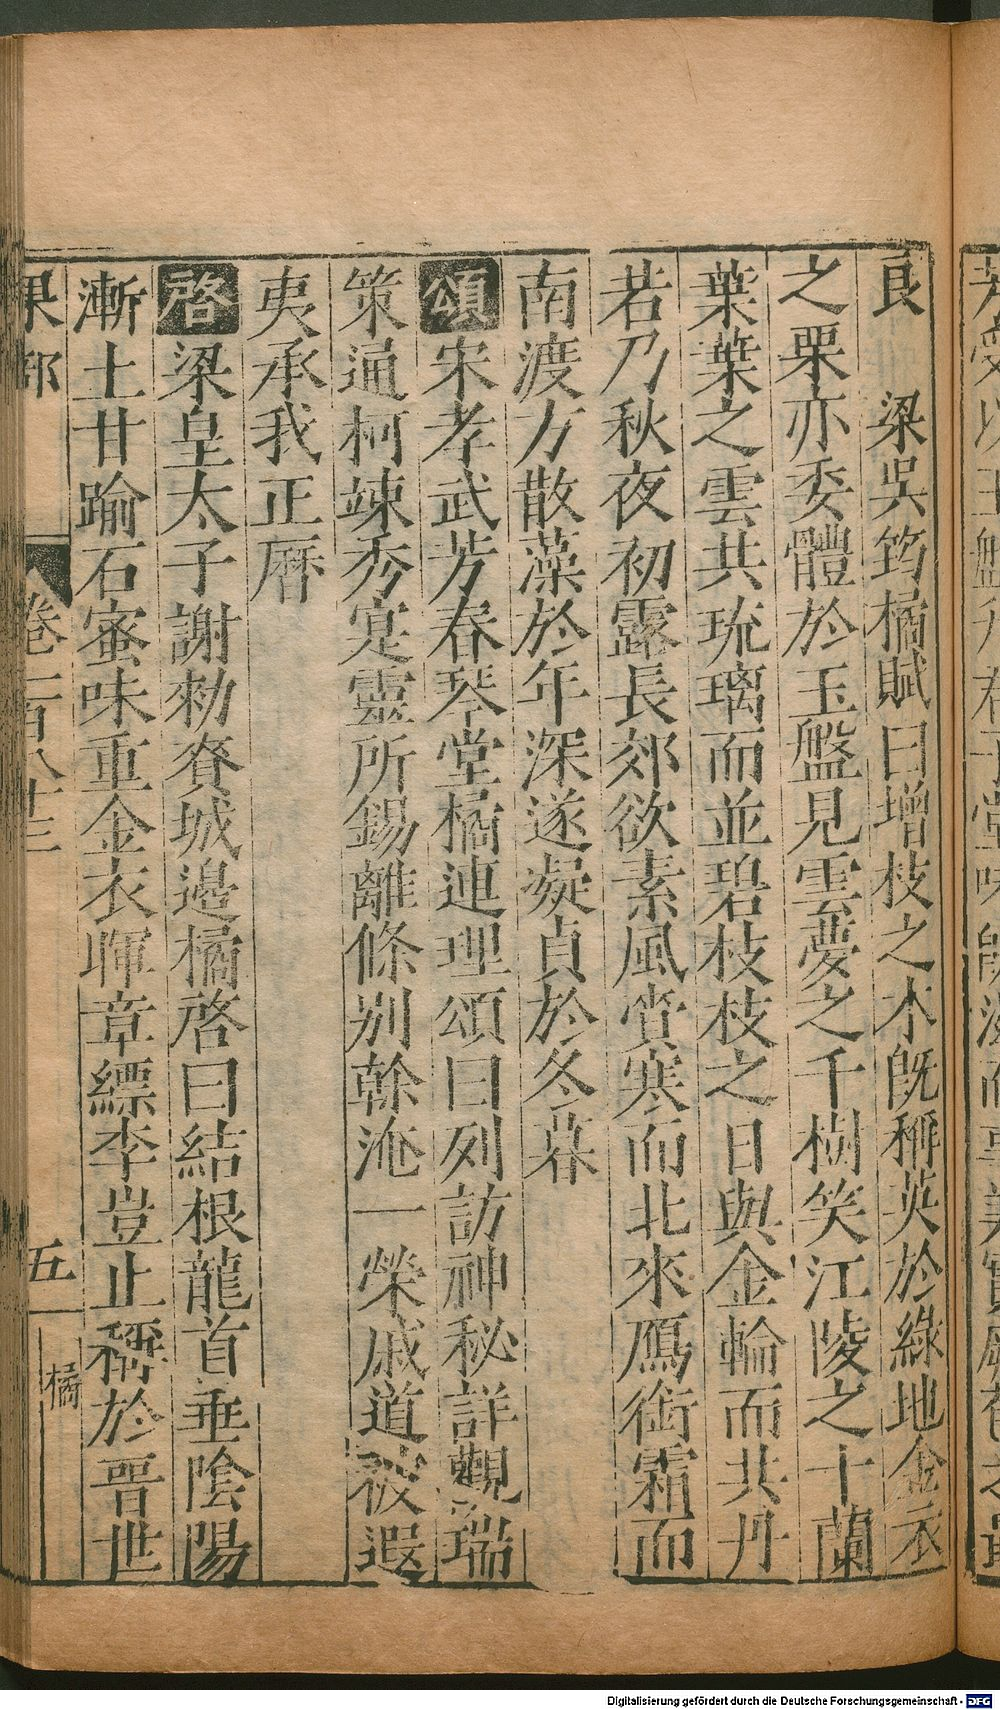 良　梁吳筠橘賦曰增枝之木既稱英於綠地金衣
之果亦委體於玉盤見雲夢之千樹笑江陵之十蘭
葉葉之雲共琉璃而並碧枝枝之日與金輪而共丹
若乃秋夜初露長郊欲素風賫寒而北來鴈銜霜而
南渡方散藻於年深遂凝貞於冬暮
頌宋孝武芳春琴堂橘連理頌曰列訪神秘詳觀瑞
策通柯竦秀寔靈所錫離條別幹淹一榮戚道被遐
夷承我正曆
啓梁皇太子謝勑賚城邊橘啓曰結根龍首垂陰陽
漸土甘踰石蜜味重金衣暉章縹李豈止稱於晋世
果部　卷二百八十三　五　橘
Digitalisierung gefördert durch die Deutsche Forschungsgemeinschaft - DFG